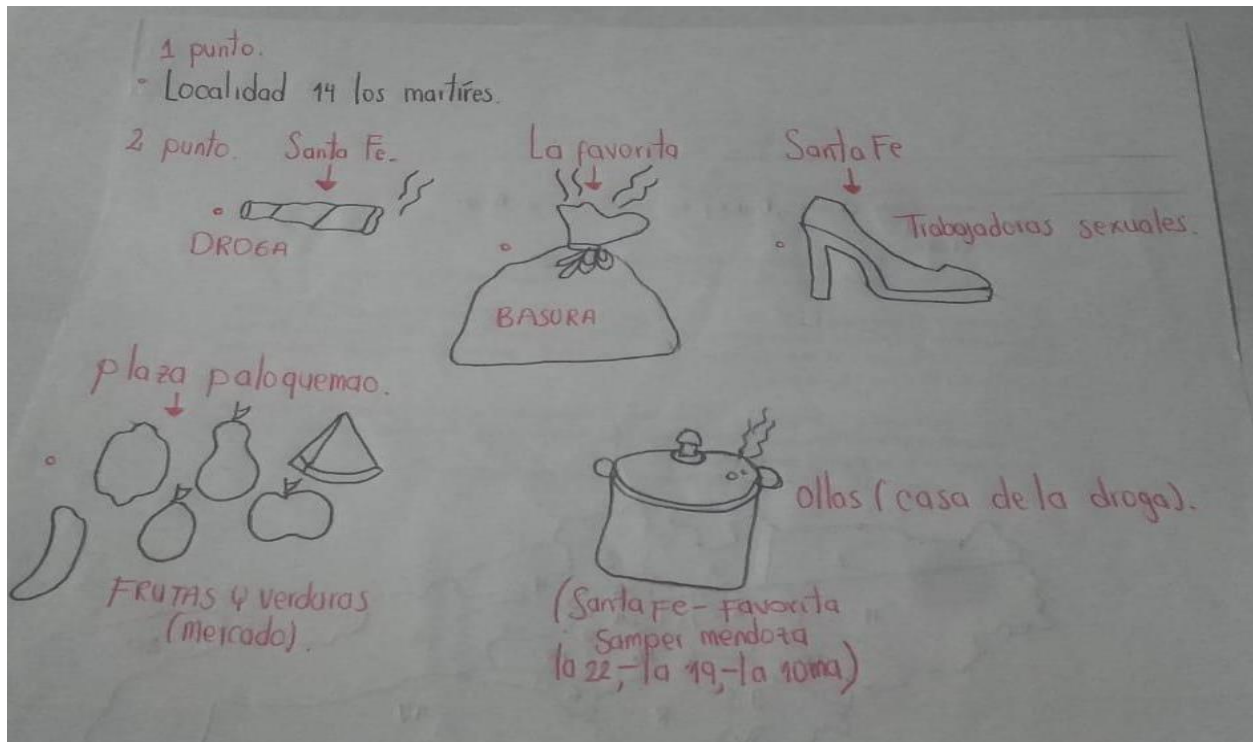 1 punto.
Localidad 14 los martires.
2 punto. Santa Fe-
La favorita
Santa Fe
DROGA
BASURA
Trabajadoras sexuales.
plaza paloquemao.
FRUTAS y verduras
(mercado).
ollas (casa de la droga).
(Santa Fe - Favorita
Samper mendoza
la 22,-la 19,-la 10ma)